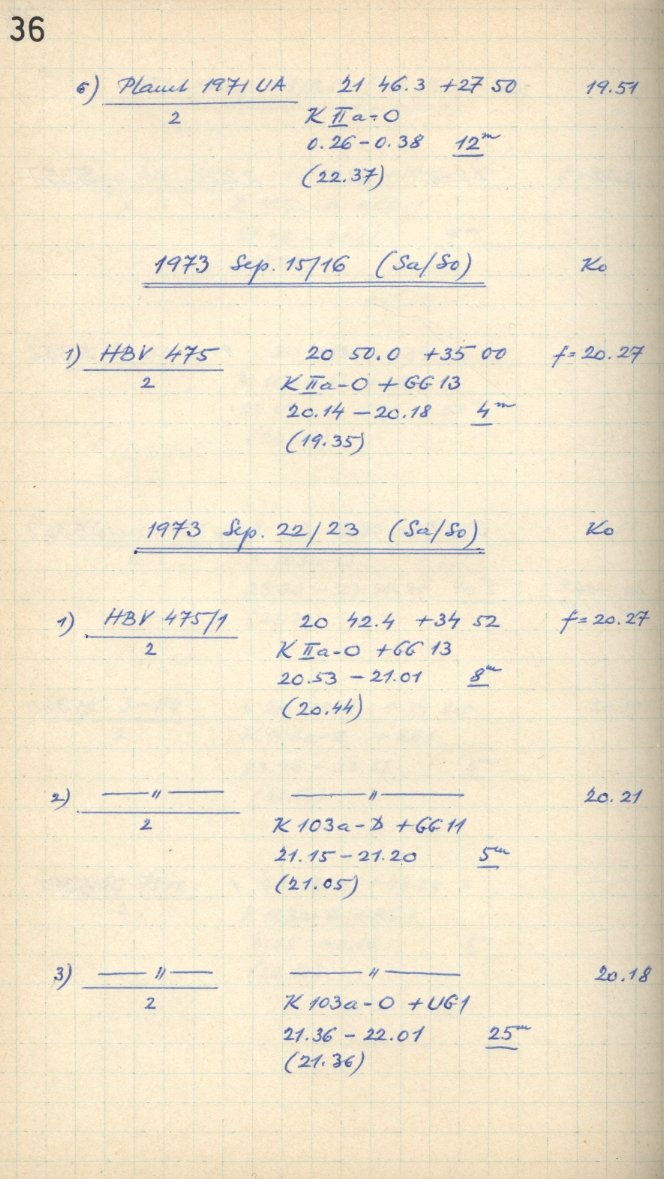 36
6) Planet 1971 UA 21 46.3 +27 50 19.51
2 K IIa-O
0.26-0.38 12m
(22.37)
1973 Sep. 15/16 (Sa/So) Ko
1) HBV 475 20 50.0 +35 00 f=20.27
2 K IIa-O + GG 13
20.14-20.18 4m
(19.35)
1973 Sep. 22/23 (Sa/So) Ko
1) HBV 475/1 20 42.4 +34 52 f=20.27
2 K IIa-O + GG 13
20.53-21.01 8m
(20.44)
2) —"— —"— 20.21
2 K 103a-D + GG 11
21.15-21.20 5m
(21.05)
3) —"— —"— 20.18
2 K 103a-O + UG1
21.36-22.01 25m
(21.36)